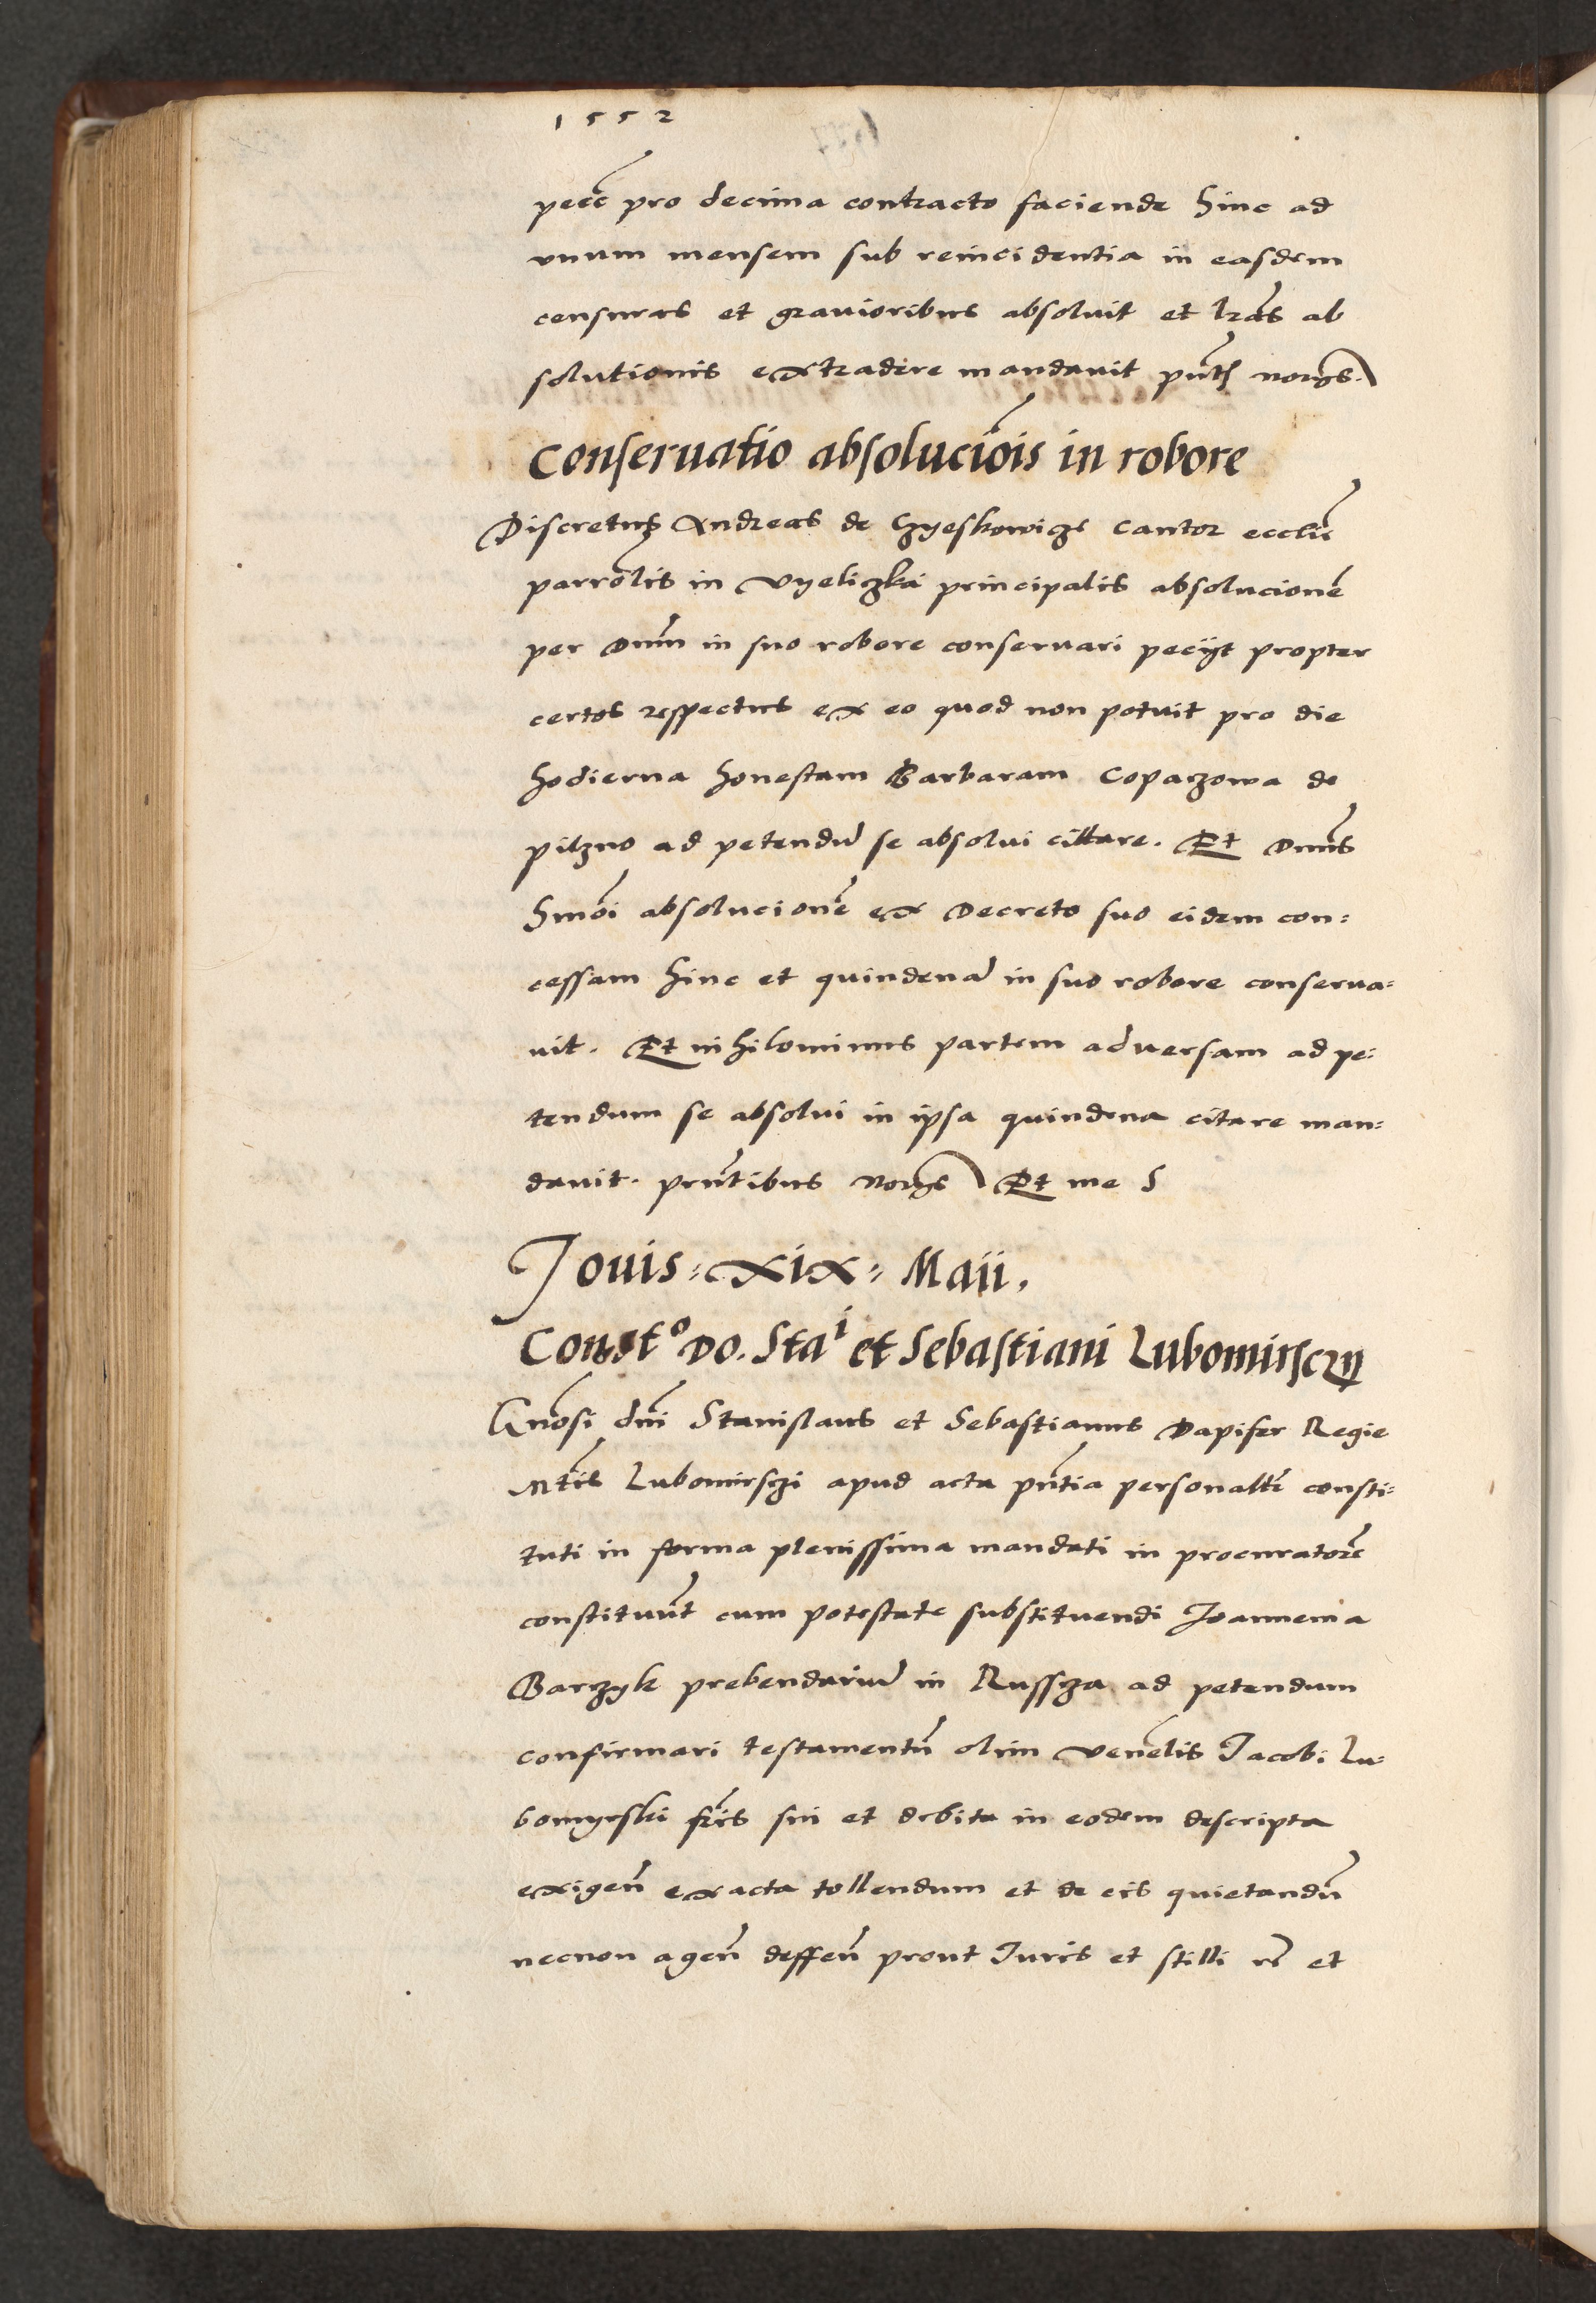 1552
pecc̃ pro decima contracto faciende hinc ad
vnum mensem sub reincidentia in easdem
censuras et grauioribus absoluit et lrãs ab
solutionis extradere mandauit pnt̃ norgs.
Conseruatio absolucio͠is in robore
Discretus Andreas de Czyeskowicze Cantor eccl̃ie
parrõlis in Vyeliczka principalis absolucionẽ
per Dnm̃ in suo robore conseruari pecijt propter
certos respectus ex eo quod non potuit pro die
hodierna honestam Barbaram Coparzowa de
pilzno ad petendũ se absolui cittare. Et Dnus̃
hmõi absolucionẽ ex Decreto suo eidem con:
cessam hinc et quindenã in suo robore conserua:
uit. Et nihilominus partem aduersam ad pe:
tendum se absolui in ipsa quindena citare man:
dauit. prñtibus norgs Et me S
Jouis: xix: Maii.
Constᵒ Do. Staⁱ et Sebastiani Lubomirsczy
Gnõsi dnĩ Stanislaus et Sebastianus Dapifer Regie
Mt̃is Lubomirsczi apud acta pñtia personalt̃r consti:
tuti in forma plenissima mandati in procuratorẽ
constituũt cum potestate substituendi Joannem a
Barzyk prebendariũ in Russcza ad petendum
confirmari testamentũ olim venẽlis Jacobi Lu:
bomyrski fr̃is sui et debita in eodem descripta
exigeñ exacta tollendum et de eis quietandũ
necnon ageñ deffeñ prout Juris et stilli rẽ et